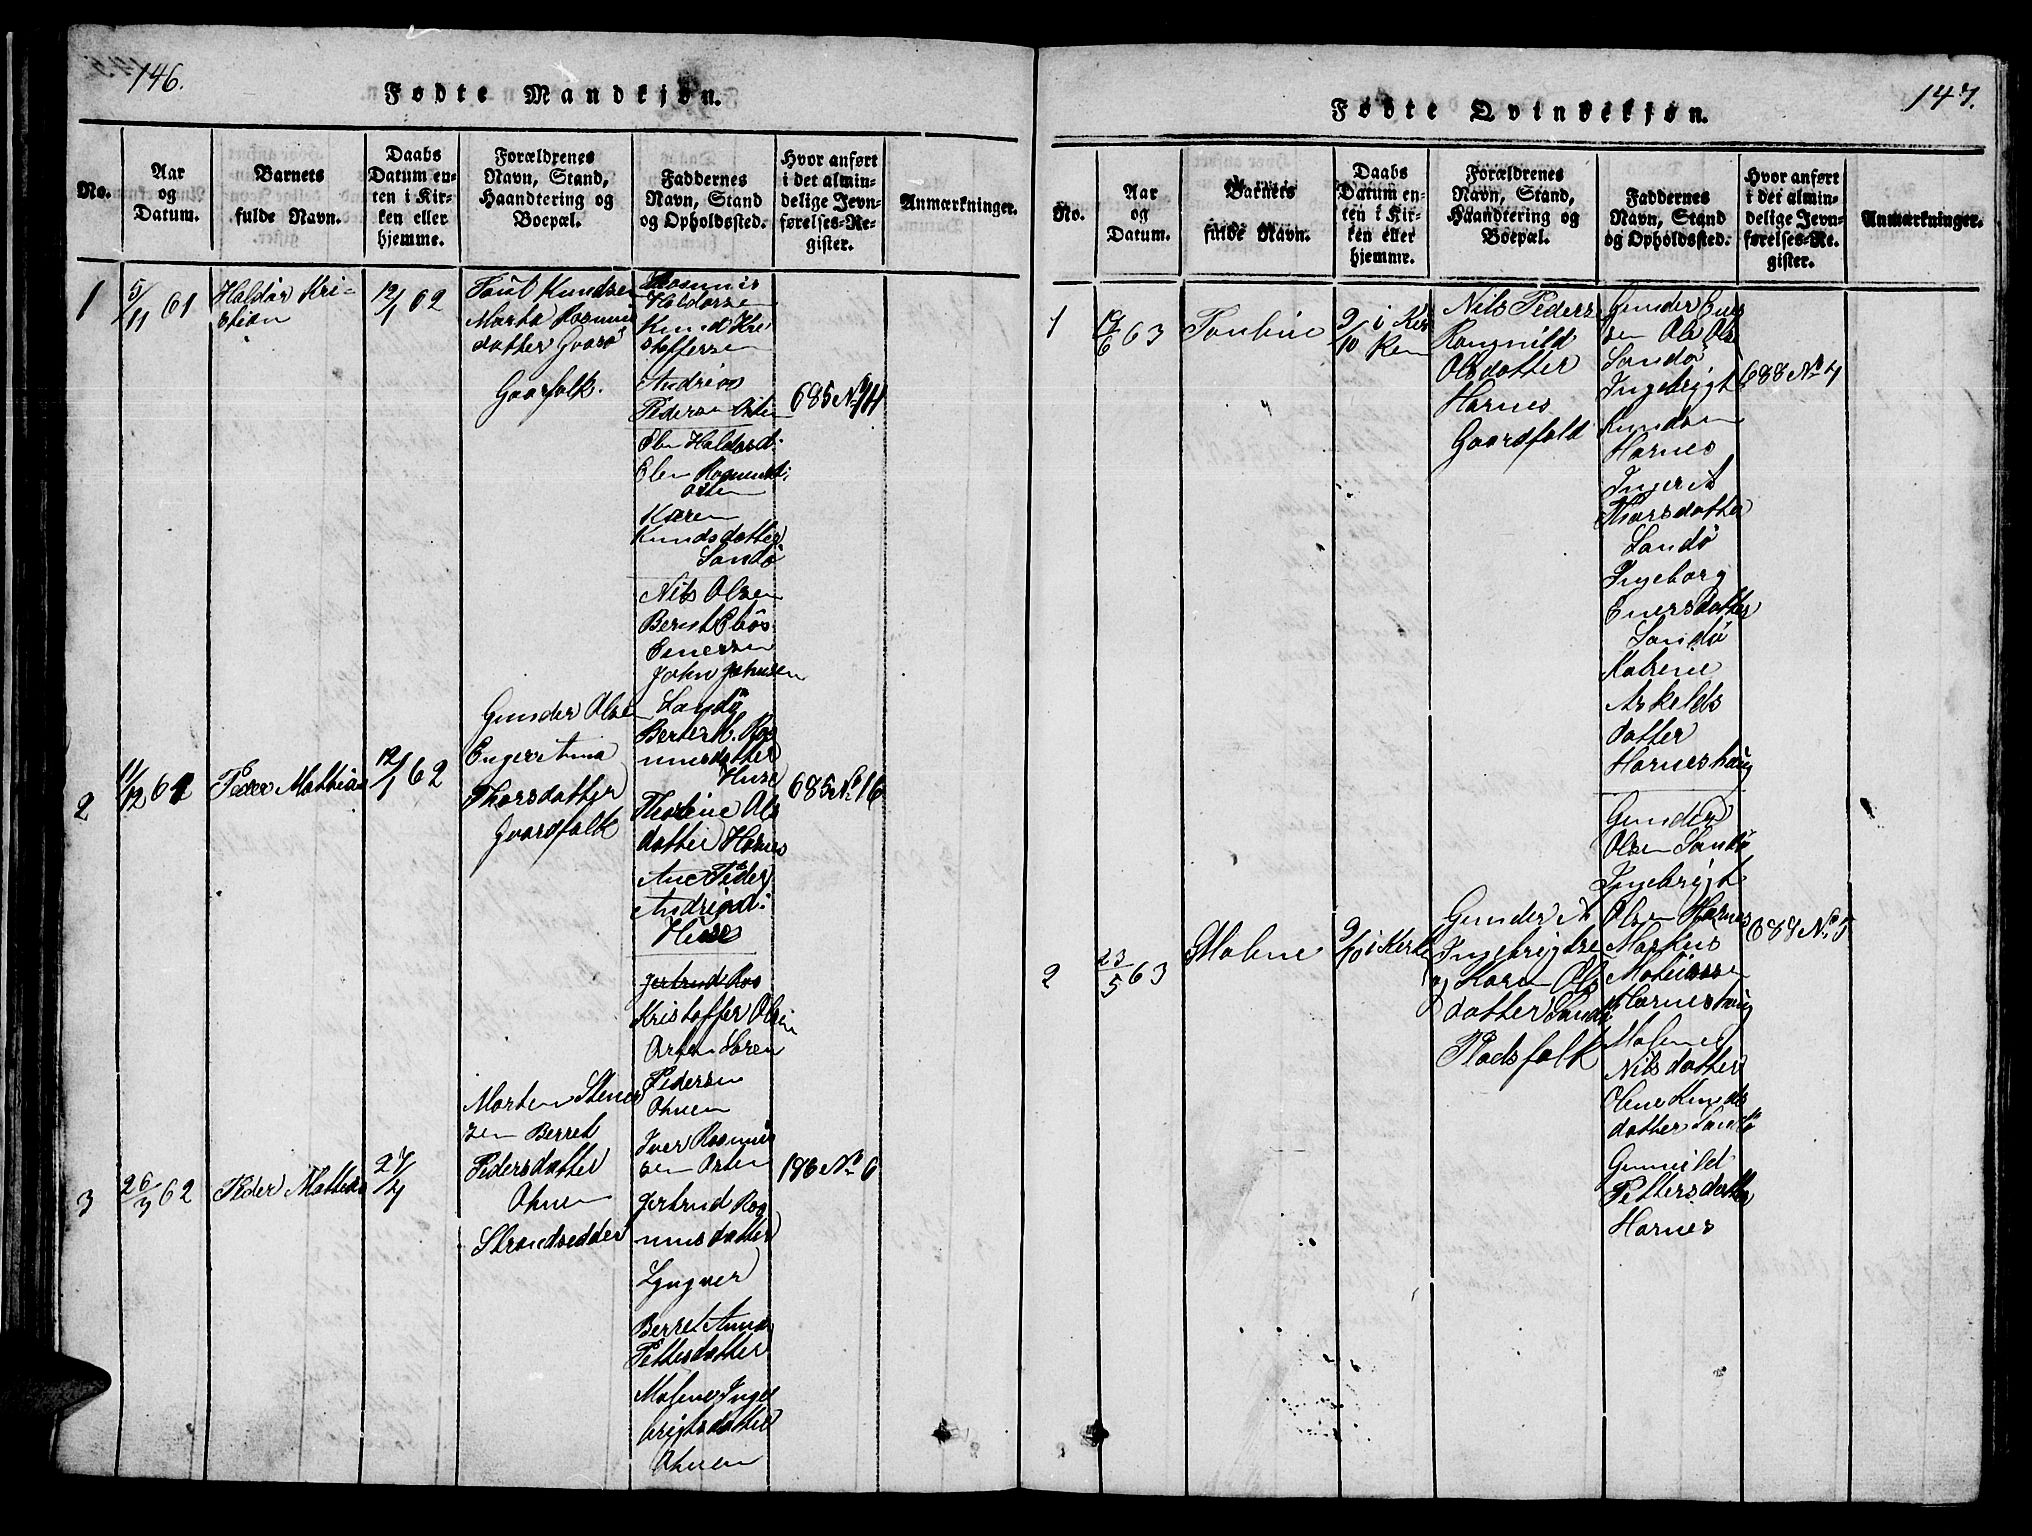 146.
Fødte Mandkjøn.
No.
Aar
og
Datum.
Barnets
fulde Navn.
Daabs
Datum en-
ten i Kir-
ken eller
hjemme.
Forældrenes
Navn, Stand,
Haandtering og
Boepæl.
Faddernes
Navn, Stand
og Opholdssted.
Hvor anført
i det almin-
delige Jevn-
førelses-Re-
gister.
Anmærkninger.
1
5/11 61
Haldor Kri-
stian
12/1 62
Knudsen
Marta Rasmus
datter
Gaarfolk.
Rasmus
Haldorsen
Knud Kri
stoffersen
Andrias
Pedersen Orten
Elen Haldord:
Elen Rasmusd:
Orten
Karen
Knudsdatter
Sandø
685 No 14
2
11/12 61
Peder Mathias
12/1 62
Gunder Olsen
Anna
Thorsdatter
Gaardfolk
Nils Olsen
Bernt
Enersen
John Johnsen
Sandø
Ras
musdatter
Huse
Tholine Ols
datter Harnes
Ane Peder
Andriasd:
Huse
685 No 16
3
26/3 62
Peder Mathias
27/4
Morten Stener
sen Berret
Pedersdatter
Ohnen
Strandsedder
Jertrud Ras
Kristoffer Olsen
Orten Søren
Pedersen
Ohnen
Iver Rasmus
sen Orten
Jertrud Ras
musdatter
Lyngver
Berret Anna
Pettersdatter
Malene Inge
brigtsdatter
Ohnen
186 No 6
147.
Fødte Qvindekjøn.
No.
Aar
og
Datum.
Barnets
fulde Navn.
Daabs
Datum en-
ten i Kir-
ken eller
hjemme.
Forældrenes
Navn, Stand,
Haandtering og
Boepæl.
Faddernes
Navn, Stand
og Opholdssted.
Hvor anført
i det almin-
delige Jevn-
førelses-Re-
gister.
Anmærkninger.
1
6 63
9/10 i Kir
ken
Nils Peders
Rangnild
Olsdatter
Harnes
Gaardfold
Gunder Ener
sen Ole Ols
Sandø
Ingebrigt
Knudsen
Harnes
Ingerit
Thorsdatter
Sandø
Ingeborg
Enersdatter
Sandø
Katrene
Askelds
datter
Harneshaug
688 No 4
2
23/5 63
Malene
9/10 i Kirke
Gunder
Ingebrigtse
og Karen Ols
datter Sandø
Pladsfolk
Gunder
Olsen Sandø
Ingebrigt
Olsen Harnes
Markus
Matiassen
Harneshaug
Malene
Nilsdatter
Olene Knuds
datter Sandø
Gunnild
Pettersdatter
Harnes
688 No 5